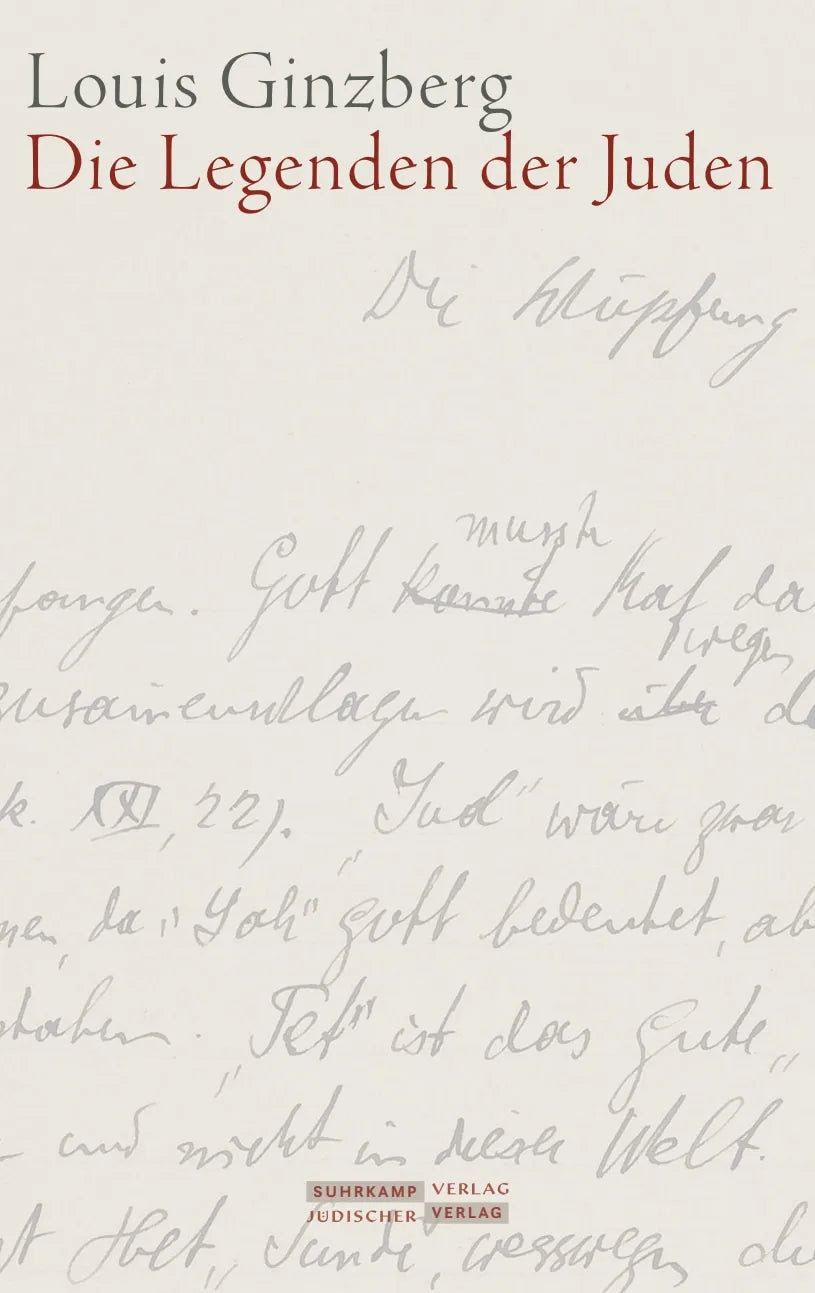 Louis Ginzberg
Die Legenden der Juden
Die Schöpfung
musste
fangen. Gott konnte Kaf da
wegen
zusammenschlagen wird über de
k. XXI, 22). „Jud" wäre zwar
nen, da „Yah" Gott bedeutet, ab
staben. „Tet" ist das Gute„
und nicht in dieser Welt.
gt Het„ Sünde, wesswegen die
SUHRKAMP VERLAG
JÜDISCHER VERLAG